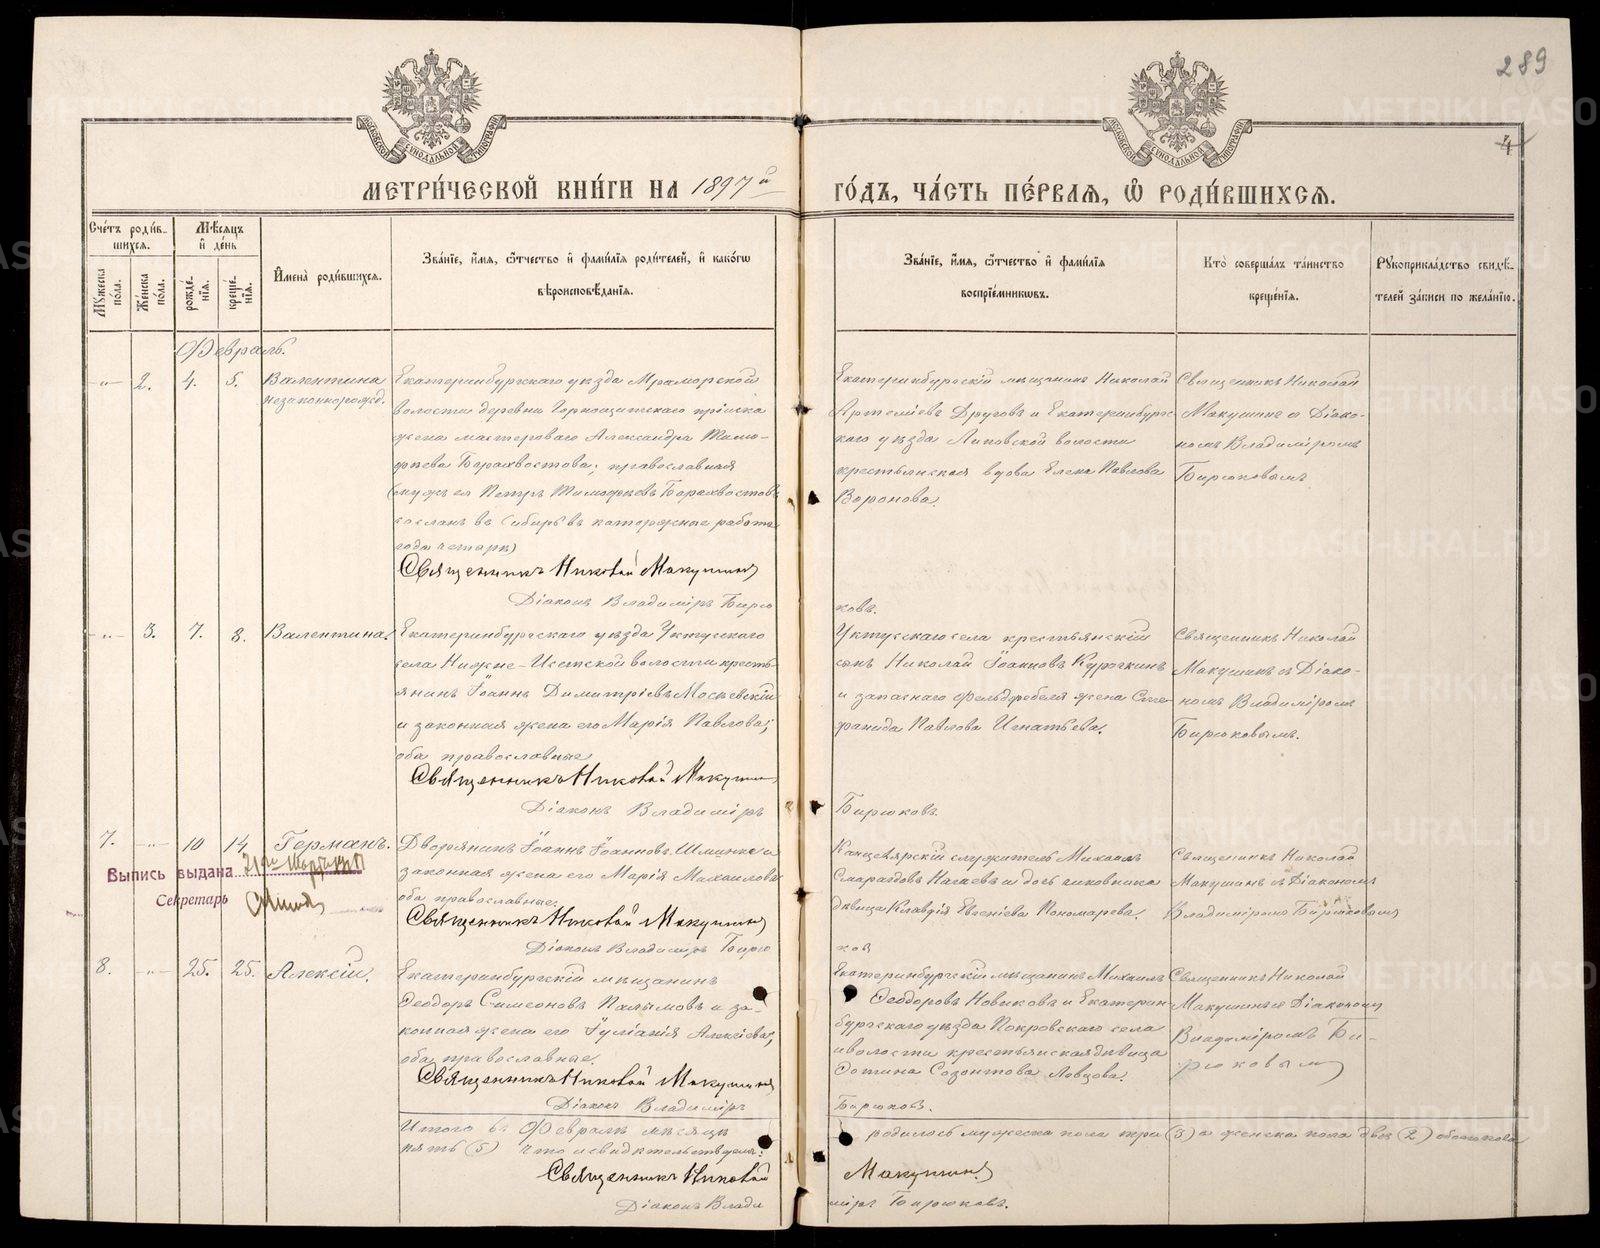 289
4
МОСКОВСКОЙ СѴНОДАЛЬНОЙ ТИПОГРАФІИ
МОСКОВСКОЙ СѴНОДАЛЬНОЙ ТИПОГРАФІИ
МЕТРИ́ЧЕСКОЙ КНИ́ГИ НА 1897й
ГО́ДЪ, ЧА́СТЬ ПЕ́РВАЯ, Ѡ РОДИ́ВШИХСЯ.
Сче́тъ роди́в-
шихся.
Мꙋ́жеска по́ла.
Же́нска по́ла.
Мѣ́сяцъ
и҆ де́нь
рожде́-
нїя.
креще́-
нїя.
И҆мена̀ роди́вшихся.
Зва́нїе, и҆́мя, ѻ҆́тчество и҆ фами́лїя роди́телей, и҆ како́гѡ
вѣроисповѣ́данїя.
Зва́нїе, и҆́мя, ѻ҆́тчество и҆ фами́лїя
воспрїе́мникѡвъ.
Кто̀ соверша́лъ та́инство
креще́нїя.
Рꙋкоприкла́дство свидѣ́-
телей за́писи по жела́нїю.
Февраль.
-"- 2. 4. 5.
Валентина
незаконнорожд.
Екатеринбургскаго уѣзда Мраморской
волости деревни Горнощитскаго пріиска
жена мастероваго Александра Тимо-
феева Барахвостова; православная
(мужъ ея Петръ Тимофеевъ Барахвостовъ
сосланъ въ Сибирь въ каторжные работы
года четыре)
Священникъ Николай Макушинъ
Діаконъ Владиміръ Бирю
Екатеринбургскій мѣщанинъ Николай
Артеміевъ Друговъ и Екатеринбургс
каго уѣзда Липовской волости
крестьянская вдова Елена Павлова
Воронова.
ковъ.
Священникъ Николай
Макушинъ съ Діако-
номъ Владиміромъ
Бирюковымъ.
-"- 3. 7. 8.
Валентина.
Екатеринбургскаго уѣзда Уктусскаго
села Нижне-Исетской волости кресть-
янинъ Іоаннъ Димитріевъ Московскій
и законная жена его Марія Павлова;
оба православные
Священникъ Николай Макушин
Діаконъ Владиміръ
Уктусскаго села крестьянскій
сынъ Николай Іоанновъ Курочкинъ
и запаснаго фельдфебеля жена Сте-
фанида Павлова Игнатьева.
Бирюковъ.
Священникъ Николай
Макушинъ съ Діако-
номъ Владиміромъ
Бирюковымъ.
7. -"- 10 14
Германъ.
Выпись выдана
Секретарь
Дворянинъ Іоаннъ Іоанновъ Шминке и
законная жена его Марія Михаилова
оба православные.
Священникъ Николай Макушинъ
Діаконъ Владиміръ Бирю
Канцелярскій служитель Михаилъ
Смарагдовъ Нагаевъ и дочь чиновника
дѣвица Клавдія Евгеніева Пономарева.
ковъ
Священникъ Николай
Макушинъ съ Діакономъ
Владиміромъ Бирюковымъ
8. -"- 25. 25.
Алексій.
Екатеринбургскій мѣщанинъ
Ѳеодоръ Симеоновъ Налымовъ и за-
конная жена его Іуліанія Алексіева;
оба православные.
Священникъ Николай Макушинъ
Діаконъ Владиміръ
Екатеринбургскій мѣщанинъ Михаилъ
Ѳеодоровъ Новиковъ и Екатерин-
бургскаго уѣзда Покровскаго села
и волости крестьянская дѣвица
Фотина Созонтова Ловцова.
Бирюковъ.
Священникъ Николай
Макушинъ съ Діакономъ
Владиміромъ Би-
рюковымъ
Итого въ Февралѣ мѣсяцѣ
родилось мужеска пола три (3) а женска пола два (2) обоего пола
пять (5) Что и свидѣтельствуемъ:
Священникъ Николай
Макушинъ
Діаконъ Влади
міръ Бирюковъ.
METRIKI.GASO-URAL.RU